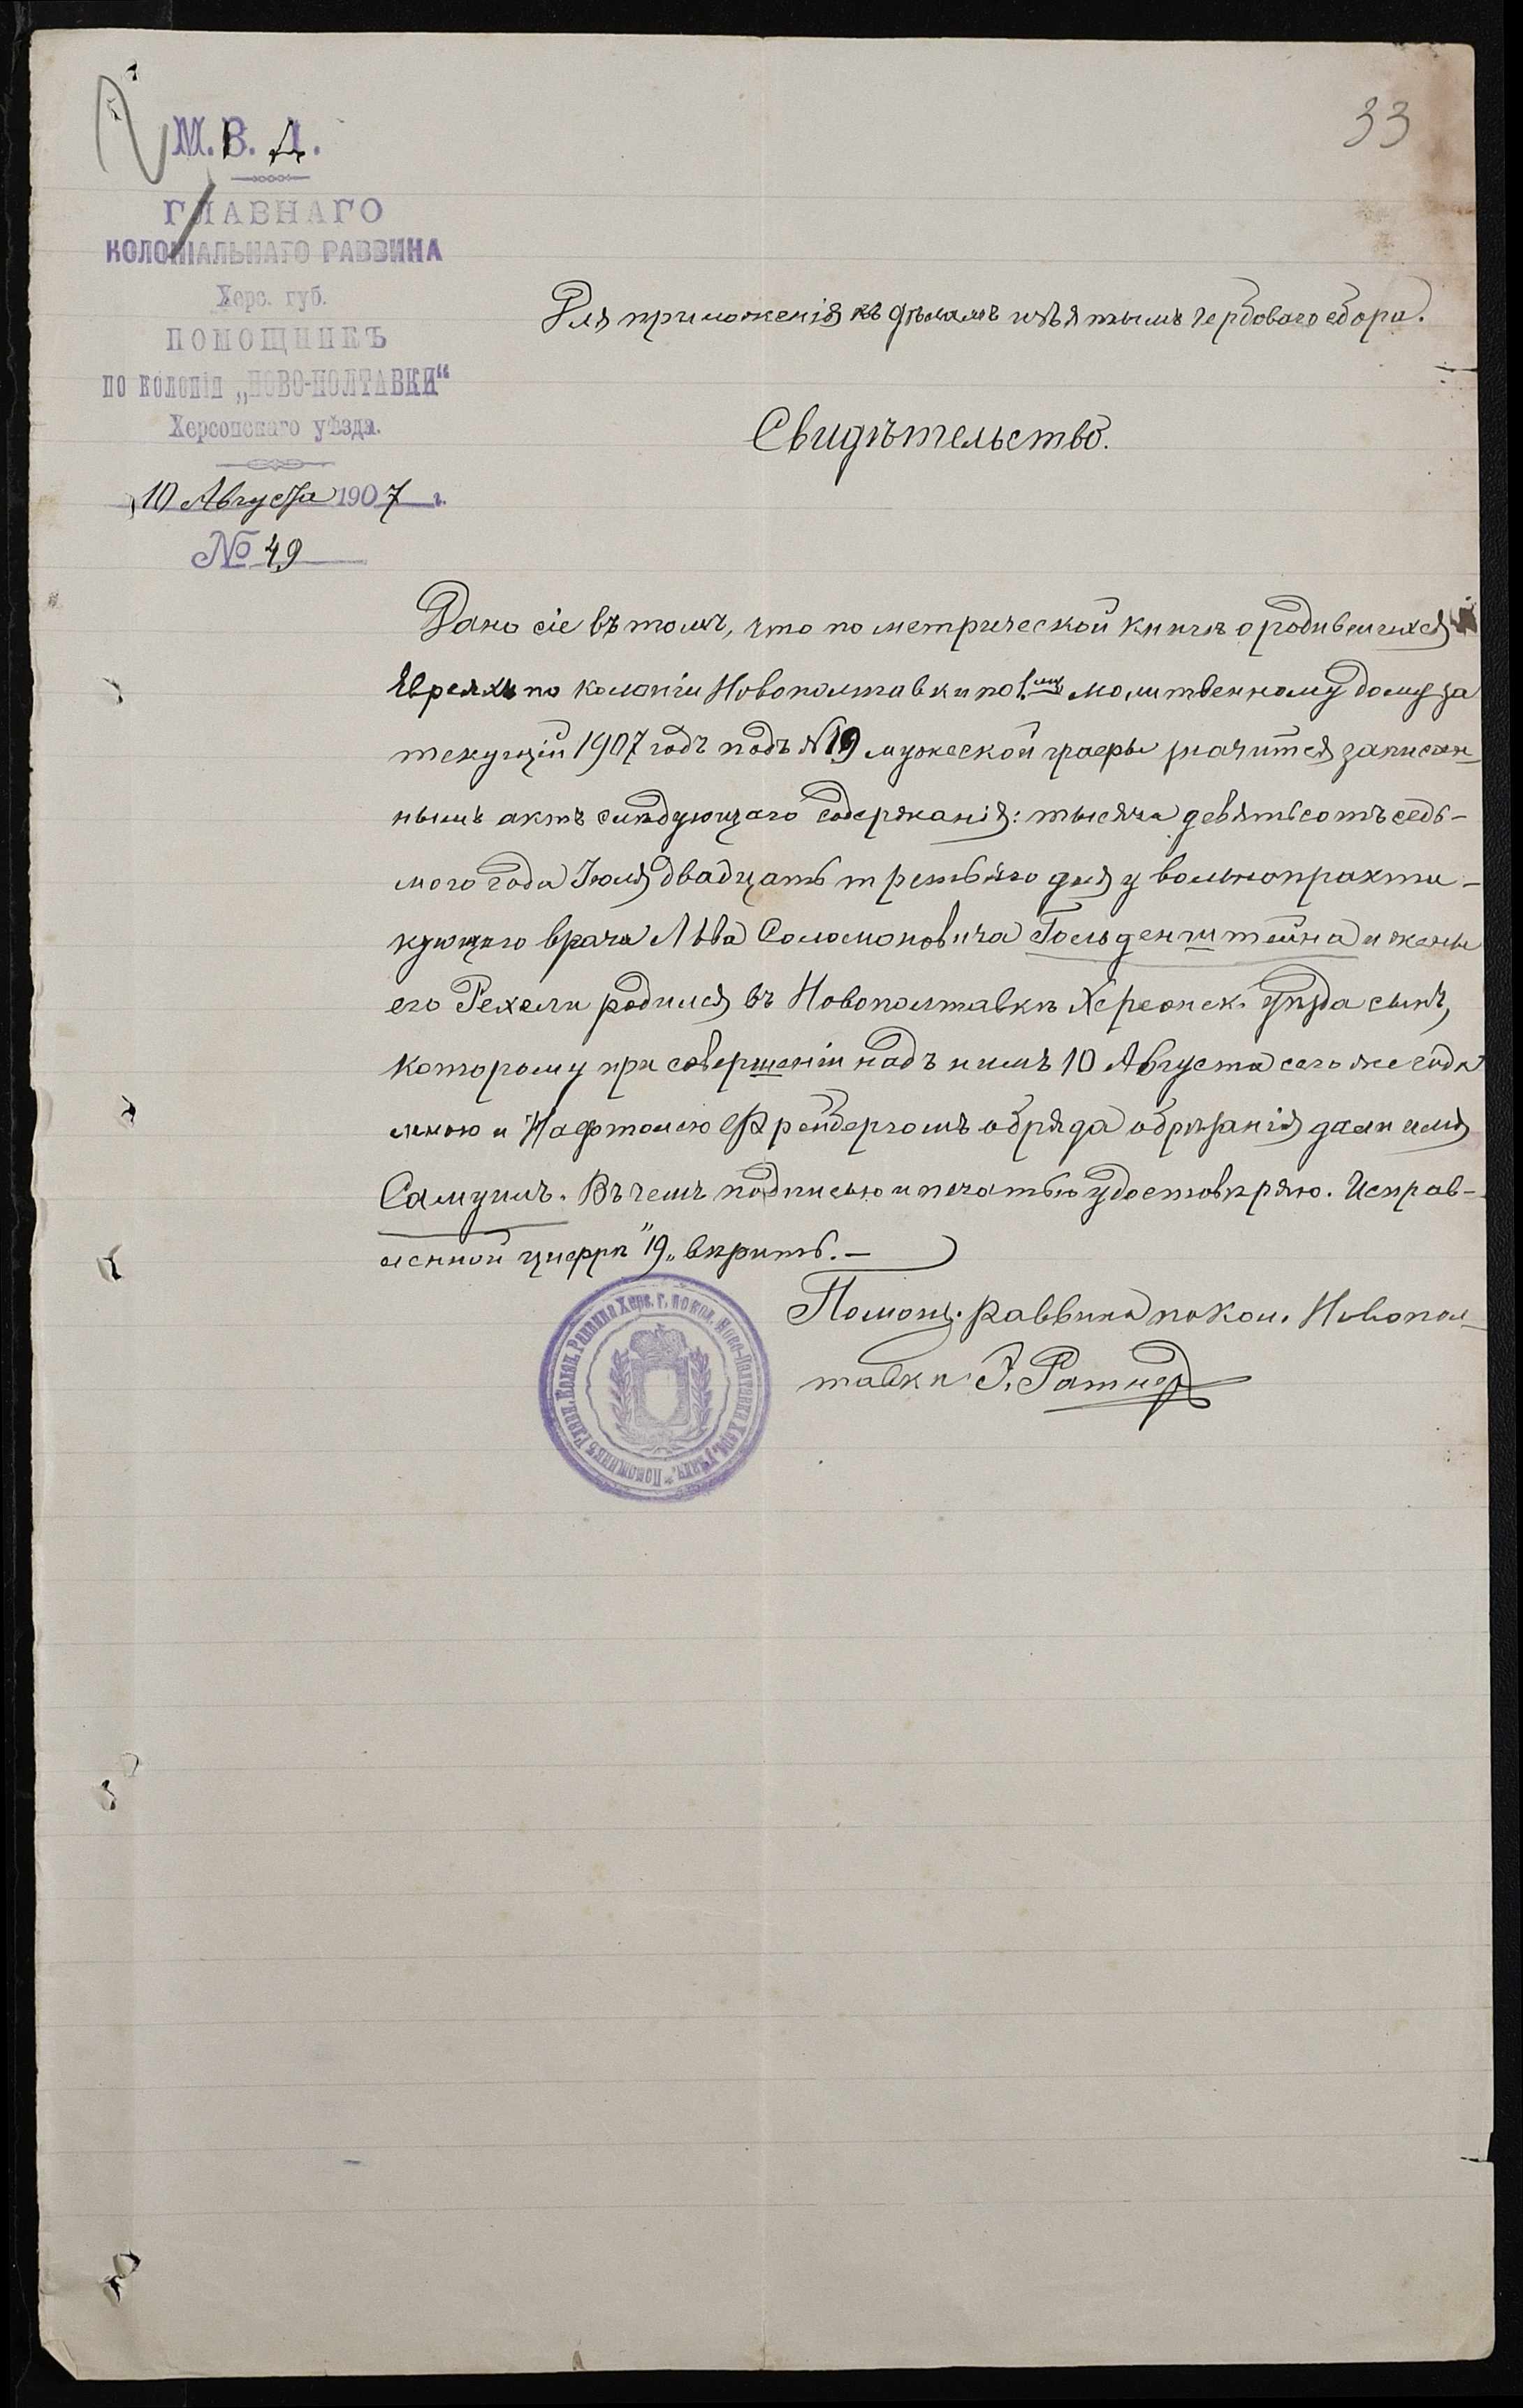 33
М. В. Д.
ГЛАВНАГО
КОЛОНІАЛЬНАГО РАВВИНА
Херс. губ.
ПОМОЩНИКЪ
по колоніи „НОВО-ПОЛТАВКИ“
Херсонскаго уѣзда.
10 Августа 1907 г.
№ 49
Для приложенія къ дѣламъ изъятымъ гербоваго сбора.
Свидѣтельство.
Дано сіе въ томъ, что по метрической книгѣ о родившихся
Евреяхъ по колоніи Новополтавки по 1.му молитвенному дому за
текущій 1907 годъ подъ № 19 мужеской графы значится записан-
нымъ актъ слѣдующаго содержанія: тысяча девятьсотъ седь-
мого года Іюля двадцать третьяго дня у вольнопракти-
кующаго врача Лѣва Соломоновича Гольденштейна и жены
его Рехели родился въ Новополтавкѣ Херсонск. уѣзда сынъ,
которому при совершеніи надъ нимъ 10 Августа сего же года
мною и Нафтолею Фрейбергомъ обряда обрѣзанія дали имя
Самуилъ. Въ чемъ подписью и печатью удостовѣряю. Исправ-
ленной цифрѣ "19„ вѣрить. —
Помощ. раввина по кол. Новопол-
тавки І. Ратнер
Помощникъ Главн. Колон. Раввина Херс. г. по кол. Ново-Полтавки Херс. уѣзда.